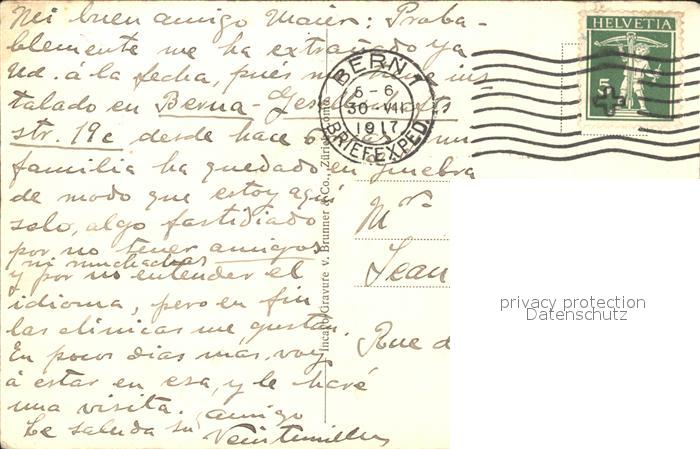 Mi buen amigo Maier: Proba-
blemente me ha extrañado ya
Ud. á la fecha, pués me he ins
talado en Berna-
str. 19c desde hace 6
familia ha quedado en Ginebra
de modo que estoy aquí
solo, algo fastidiado
por no tener amigos
ni muchachas
y por no entender el
idioma, pero en fin
las clinicas me gustan.
En pocos dias mas, voy
á estar en esa, y le haré
una visita.
Le saluda su amigo
Veintimilla
HELVETIA
5
BERN 1
5-6
30 VII
1917
BRIEFEXPED.
Incavo-Gravure v. Brunner & Co., Zürich
Mr
Jean
Rue d
privacy protection
Datenschutz